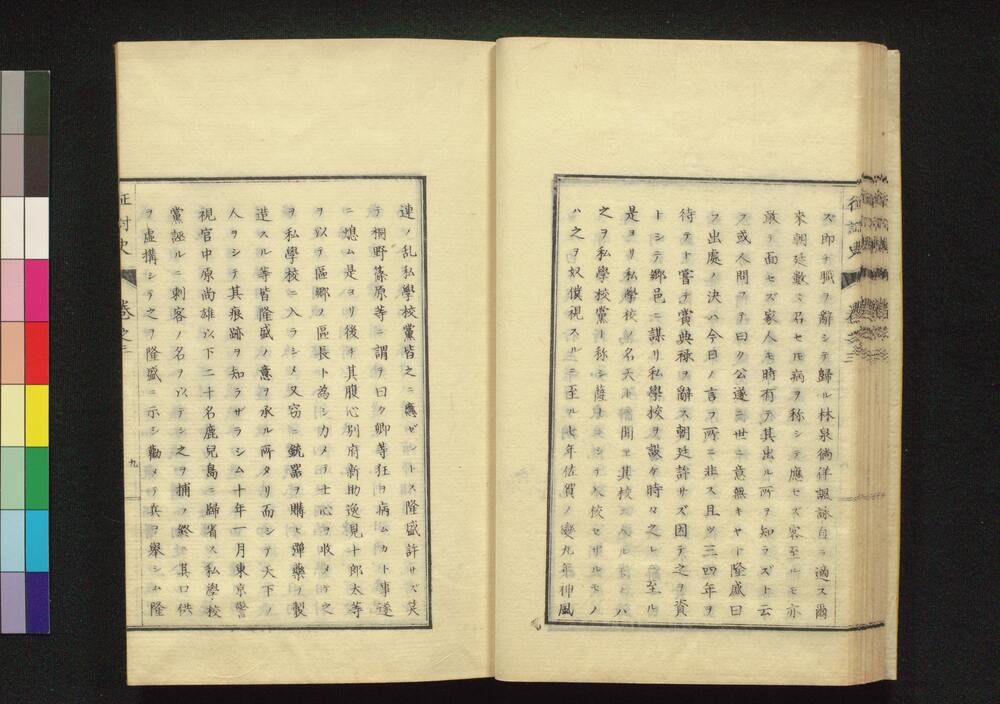 ズ即チ職ヲ辭シテ歸ル林泉徜徉諷詠自ラ適ス爾
來朝廷數〻召セ𪜈病ヲ称シテ應セズ客至ルモ亦
敢テ面セズ家人モ時有テ其出ル所ヲ知ラズト云
フ或人問フテ曰ク公遂ニ世ニ意無キヤト隆盛曰
フ出處ノ決ハ今日ノ言フ所ニ非ス且ツ三四年ヲ
待テト嘗テ賞典禄ヲ辭ス朝廷許サズ因テ之ヲ資
トシテ郷邑ニ謀リ私學校ヲ設ケ時々之レニ至ル
是ヨリ私學校ノ名天下ニ聞エ其校ニ入ルモノハ
之ヲ私學校黨ト称シ薩人ニシテ入校セザルモノ
ハ之ヲ奴僕視スルニ至ル七年佐賀ノ變九年神風
征討史
連ノ乱私學校黨皆之ニ應ゼントス隆盛許サズ笑
テ桐野篠原等ニ謂テ曰ク卿等狂ヲ病ムカト事遂
ニ熄ム是ヨリ後チ其腹心別府新助逸見十郎太等
ヲ以テ區郷ノ區長ト為シ力メテ士心ヲ收メ又之
ヲ私學校ニ入ラシメ又窃ニ銃器ヲ購ヒ彈藥ヲ製
造スル等皆隆盛ノ意ヲ承ル所タリ而シテ天下ノ
人ヲシテ其痕跡ヲ知ラザラシム十年一月東京警
視官中原尚雄以下二十名鹿兒島ニ歸省ス私學校
黨誣ルニ刺客ノ名ヲ以テシ之ヲ捕ヲ終ニ其口供
ヲ虚搆シテ之ヲ隆盛ニ示シ勸メテ兵ヲ舉シム隆
征討史 卷之三 九